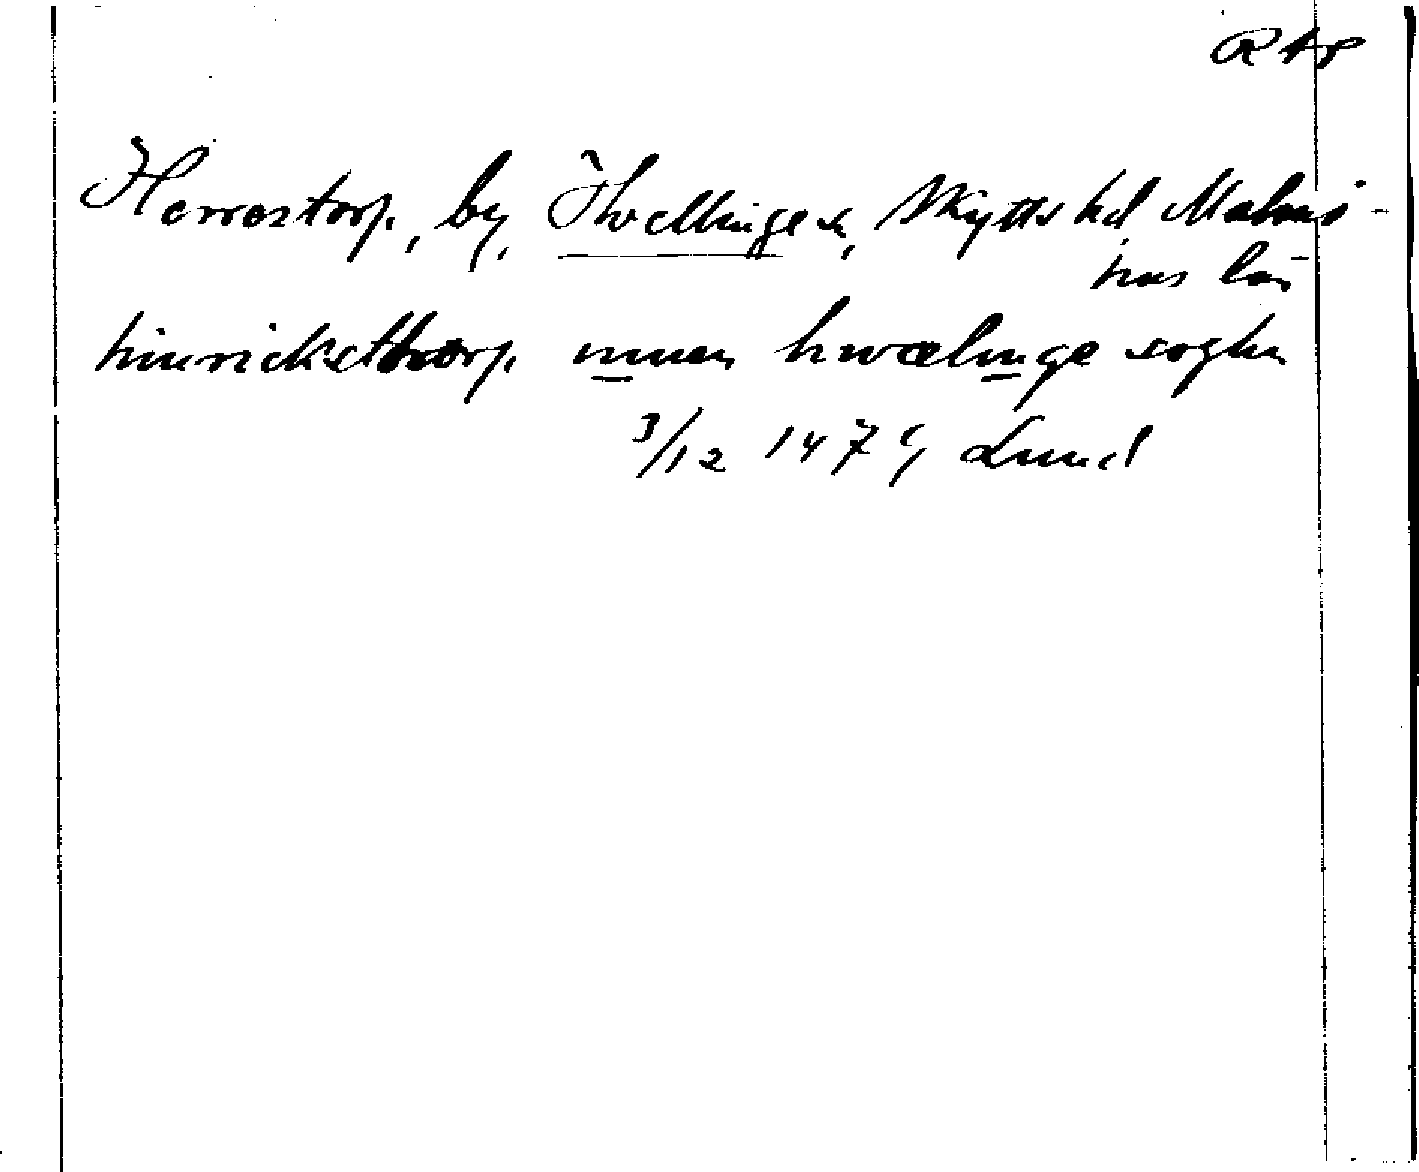 RAp
Herrestorp, by, Hvellinge s., Skytts hd Malmö-
hus län
hinricksthorp innen hwælinge soghn
3/12 1479 Lund